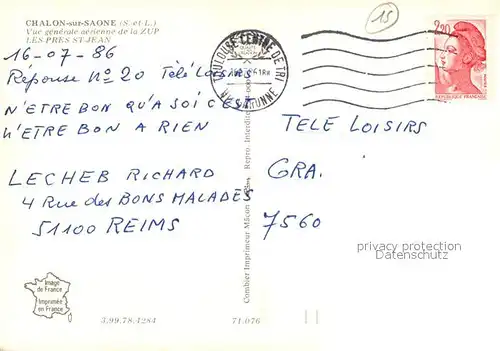 CHALON-sur-SAONE (S.-et-L.)
Vue générale aérienne de la ZUP
LES PRES ST-JEAN
16-07-86
Réponse No 20 Télé Loisirs
N'ETRE BON QU'A SOI C'EST
N'ETRE BON A RIEN
LECHEB RICHARD
4 Rue des BONS MALADES
51100 REIMS
Image
de France
Imprimée
en France
3.99.78.4284
71.076
Combier Imprimeur Mâcon
Repro. Interdite
TOULOUSE CENTRE DE TRI
HTE GARONNE
15
2,20
REPUBLIQUE FRANÇAISE
TELE LOISIRS
GRA.
7560
privacy protection
watermark